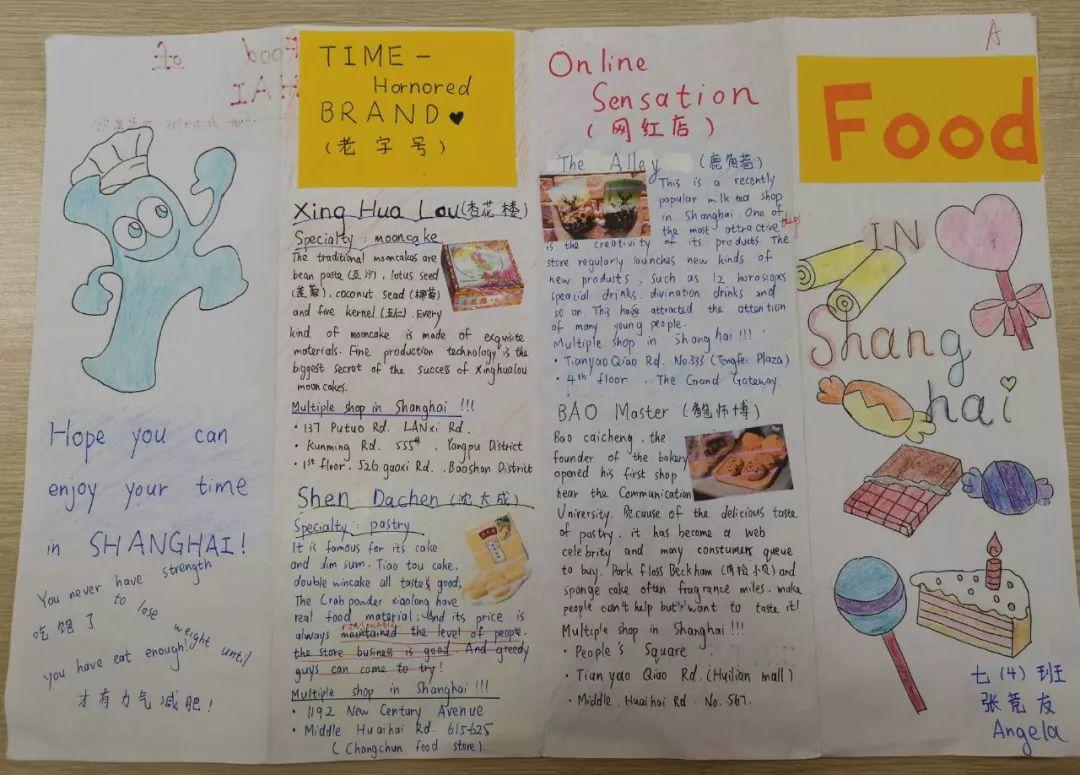 Food
of
HAI
Hope you can
enjoy your time
in SHANGHAI!
You never have strength
to lose
weight until
you have eat enough!
吃饱了
才有力气减肥!
TIME-
Hornored
BRAND
(老字号)
Xing Hua Lou(杏花楼)
Specialty: mooncake.
The traditional mooncakes are
bean paste (豆沙), lotus seed
(莲蓉), coconut sead (椰蓉)
and five kernel (五仁). Every
kind of mooncake is made of exquisite
materials. Fine production technology is the
biggest secret of the success of Xinghualou
moon cakes.
Multiple shop in Shanghai !!!
• 137 Putuo Rd. LANxi Rd.
• Kunming Rd. 555#, Yangpu District
• 1st floor. 526 gaoxi Rd. , Baoshan District
Shen Dachen (沈大成)
Specialty : pastry
It is famous for its cake
and dim sum. Tiao tou cake,
double wincake all tastes good,
The Crab powder xiaolong have
real food material. And its price is
always maintained the level of people.
reasonable
the store business is good. And greedy
guys can come to try!
Multiple shop in Shanghai !!!
• 1192 New Century Avenue
• Middle Huaihai Rd. 615-625
( Changchun food store).
Online
Sensation
(网红店)
The Alley (鹿角巷)
This is a recently
popular milk tea shop
in Shanghai. One of
the most attractive
is the creativity of its products. The
store regularly launches new kinds of
new products, such as 12 horoscopes
speacial drinks, divination drinks and
so on. This have attracted the attantion
of many young people.
Multiple shop in Shanghai !!!
• Tianyao Qiao Rd. No.333 (Tengfei Plaza)
• 4th floor. , The Grand Gateway.
BAO Master (鲍师博)
Bao caicheng, the
founder of the bakery
opened his first shop
near the Communication
University. Because of the delicious taste
of pastry, it has become a web
celebrity and many constumers queue
to buy. Pork floss Beckham (肉松小贝) and
sponge cake often fragrance miles. make
people can't help but want to taste it!
Multiple shop in Shanghai !!!
• People's Square
• Tian yao Qiao Rd. (Huilian mall)
• Middle. Huaihai Rd. No.567.
A
Food
IN
Shang
hai
七(4)班
张莞友
Angela